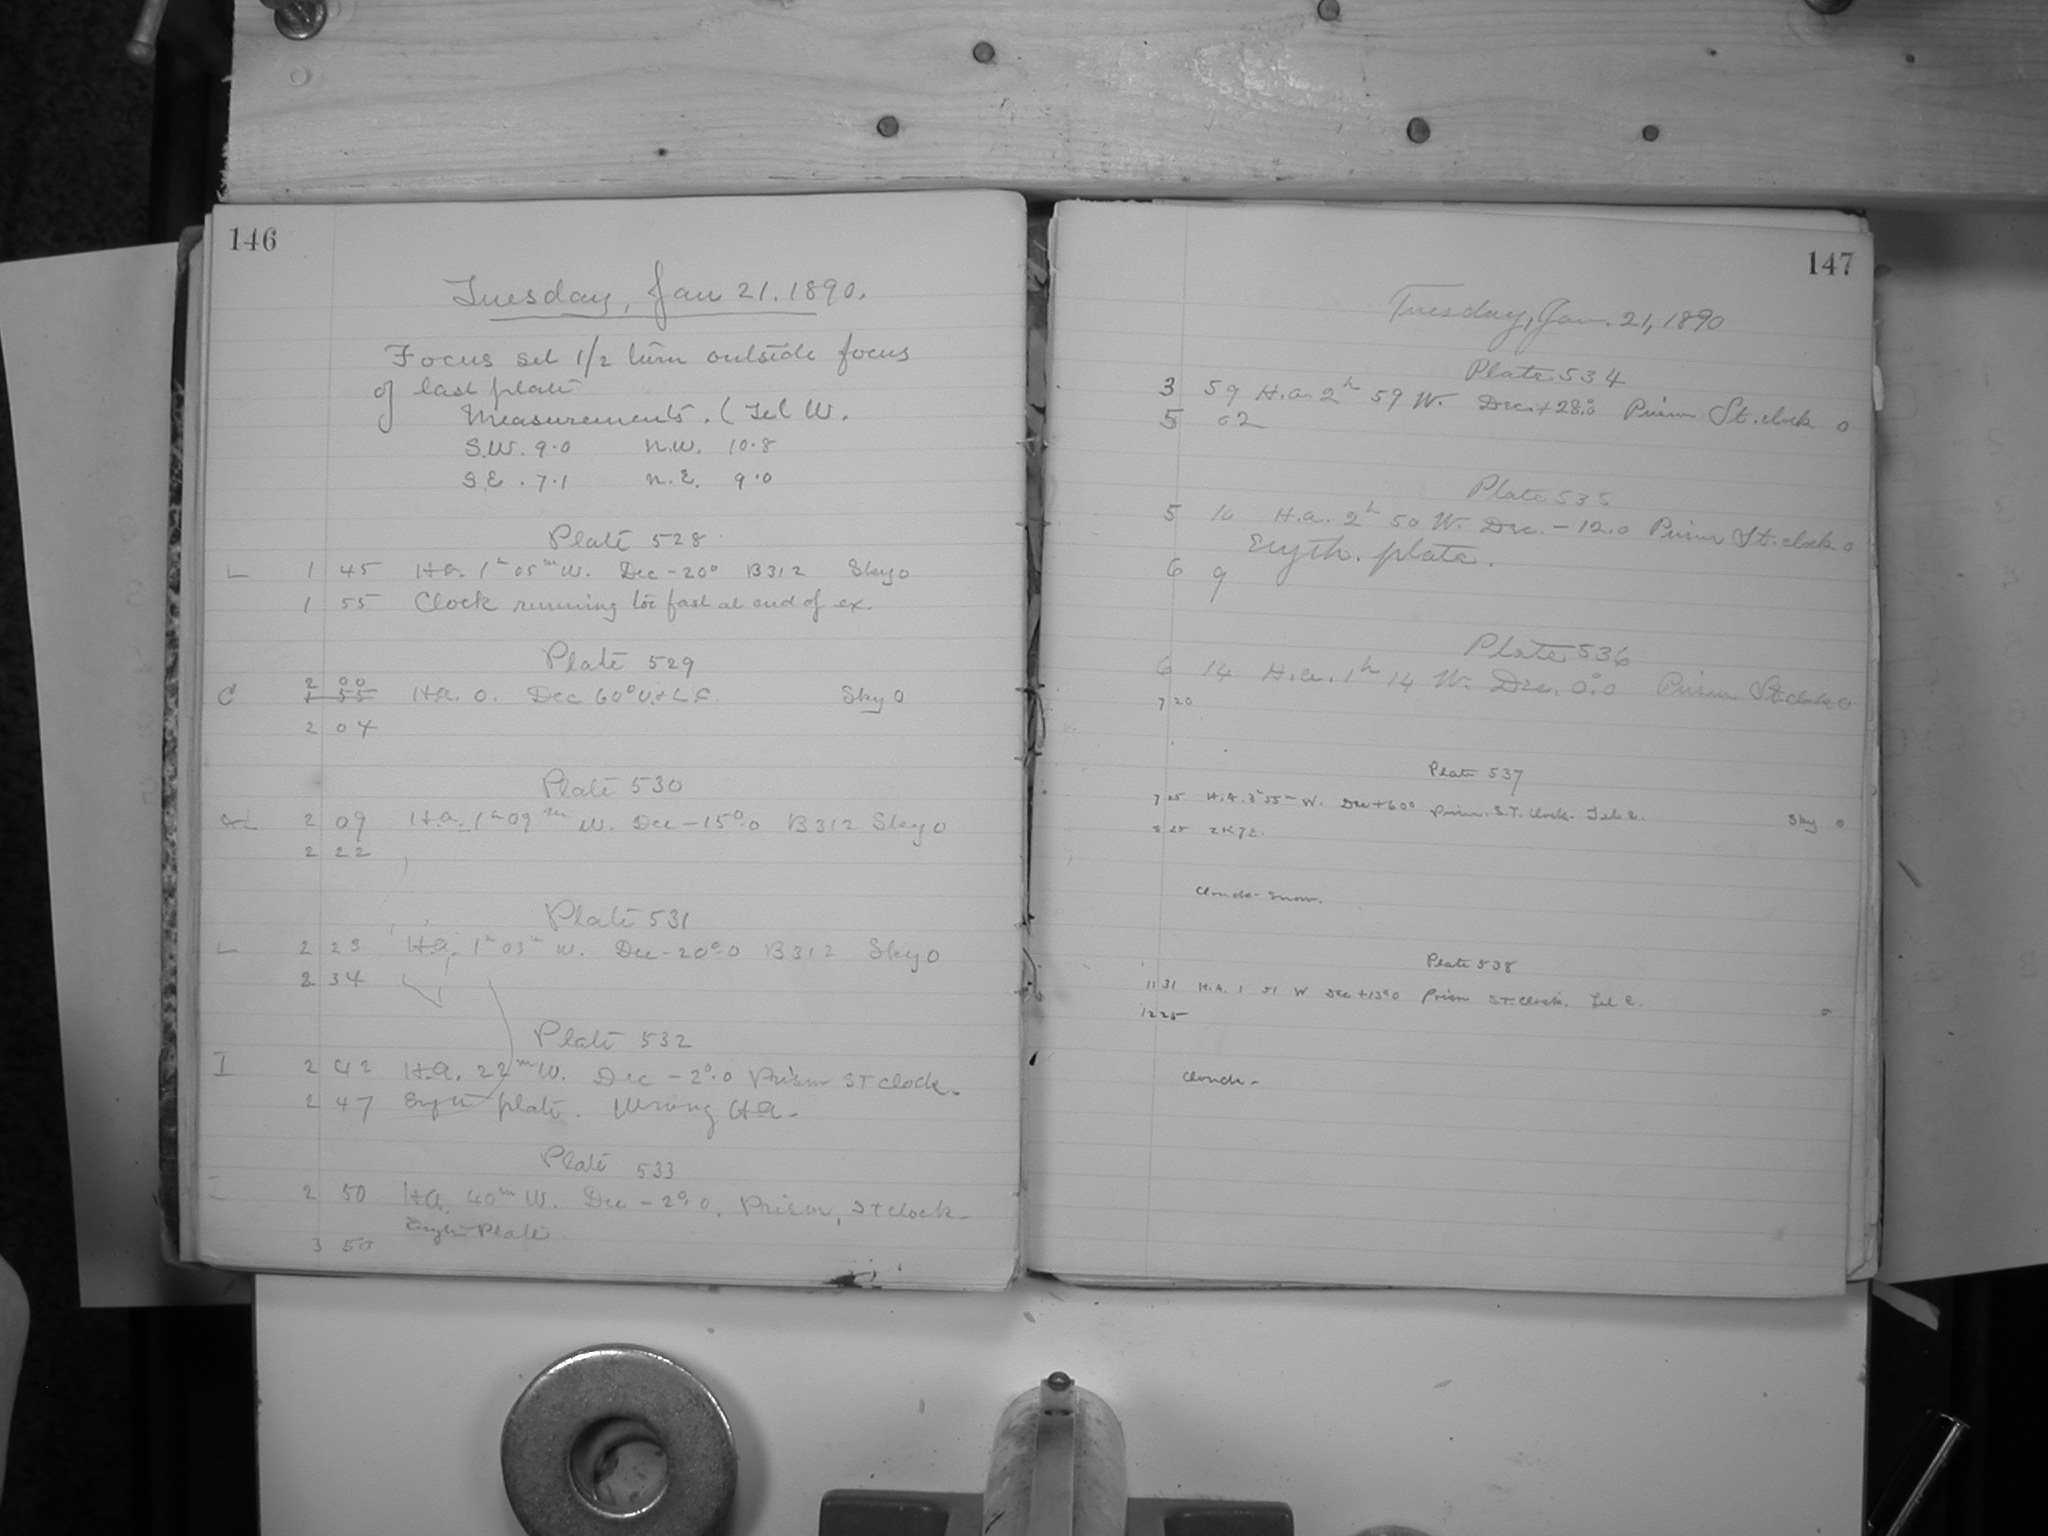 146
Tuesday, Jan 21. 1890.
Focus set 1/2 turn outside focus
of last plate
Measurements. (Tel W.
S.W. 9.0 N.W. 10.8
S.E. 7.1 N.E. 9.0
Plate 528
L 1 45 H.a. 1h 05m W. Dec -20° B312 Sky 0
1 55 Clock running too fast at end of ex.
Plate 529
2 00
C 1 55 H.a. 0. Dec 60° U. & L.C. Sky 0
2 04
Plate 530
L 2 09 H.a. 1h 09m W. Dec -15°.0 B312 Sky 0
2 22
Plate 531
L 2 23 H.a. 1h 03m W. Dec -20°.0 B312 Sky 0
2 34
Plate 532
I 2 42 H.a. 22m W. Dec -2°.0 Prism ST clock.
2 47 Eryth plate. Wrong H.a.
Plate 533
I 2 50 H.a. 40m W. Dec -2°.0. Prism, St clock
Eryth Plate
3 50
147
Tuesday, Jan. 21, 1890
Plate 534
3 59 H.a. 2h 59 W. Dec. +28°.0 Prism St. clock 0
5 02
Plate 535
5 10 H.a. 2h 50 W. Dec. -12.0 Prism St. clock 0
Eryth. plate.
6 9
Plate 536
6 14 H.a. 1h 14 W. Dec. 0°.0 Prism St. clock 0
7 20
Plate 537
7 25 H.A. 3h 55m W. Dec +60° Prism. S.T. Clock. Tel E. Sky 0
8 25
Clouds - Snow.
Plate 538
11 31 H.A. 1 51 W Dec +13°0 Prism ST. Clock. Tel E. 0
12 25
Clouds -